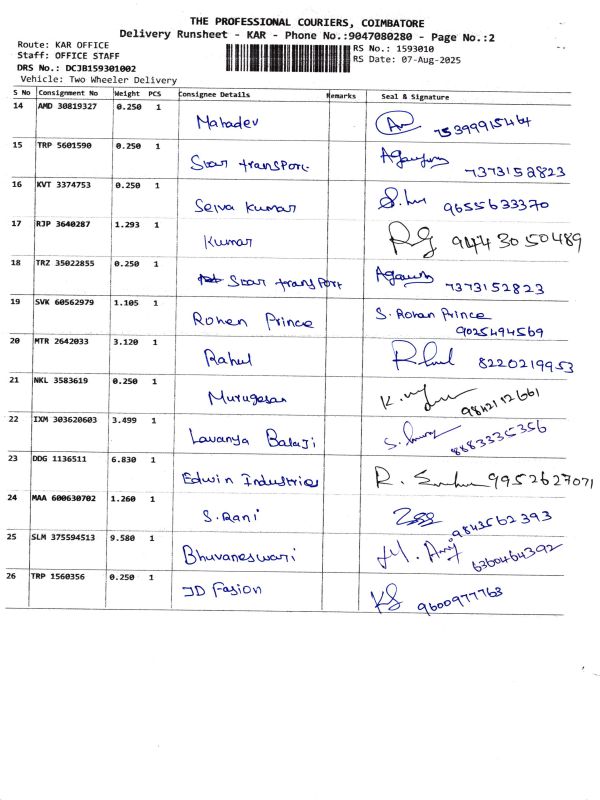 THE PROFESSIONAL COURIERS, COIMBATORE
Delivery Runsheet - KAR - Phone No.:9047080280 - Page No.:2
Route: KAR OFFICE RS No.: 1593010
Staff: OFFICE STAFF RS Date: 07-Aug-2025
DRS No.: DCJB159301002
Vehicle: Two Wheeler Delivery
S No Consignment No Weight PCS Consignee Details Remarks Seal & Signature
14 AMD 30819327 0.250 1
Mahadev 75399915464
15 TRP 5601590 0.250 1
Star transport 7373152823
16 KVT 3374753 0.250 1
Selva Kumar 9655633370
17 RJP 3640287 1.293 1
Kumar 9443050489
18 TRZ 35022855 0.250 1
Star transport 7373152823
19 SVK 60562979 1.105 1
Rohen Prince S. Rohan Prince
9025494569
20 MTR 2642033 3.120 1
Rahul 8220219953
21 NKL 3583619 0.250 1
Murugesan 9842112661
22 IXM 303620603 3.499 1
Lavanya Balaji 8883335356
23 DDG 1136511 6.830 1
Edwin Industries 9952627071
24 MAA 600630702 1.260 1
S.Rani 9843562393
25 SLM 375594513 9.580 1
Bhuvaneswari 6360464392
26 TRP 1560356 0.250 1
JD Fasion 9600977763